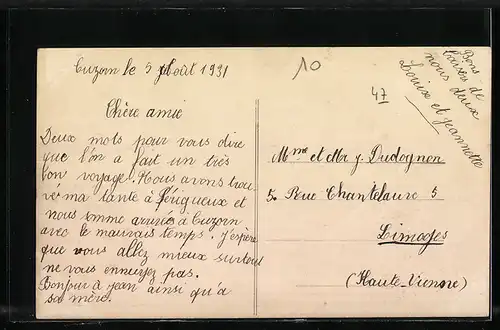 Cuzorn le 5 Août 1931
10
47
Bons
baisés de
nous deux
Louise et Jeannette
Chère amie
Deux mots pour vous dire
que l'on a fait un très
bon voyage. Nous avons trou-
vé ma tante à Périgueux et
nous somme arrivés à Cuzorn
avec le mauvais temps. J'espère
que vous allez mieux surtout
ne vous ennuyez pas.
Bonjour à jean ainsi qu'a
sa mère.
Mme et Mr J. Dudognon
5. Rue Chantelauve 5
Limoges
(Haute-Vienne)